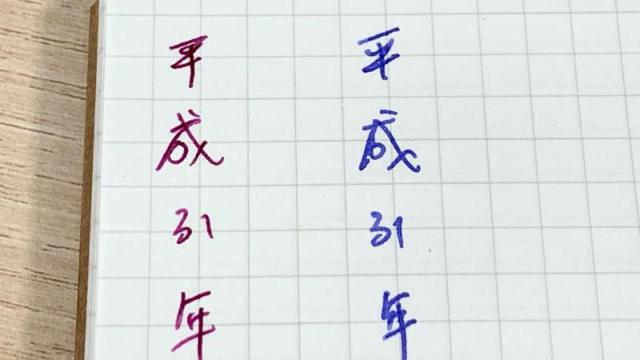 平成31年
平成31年